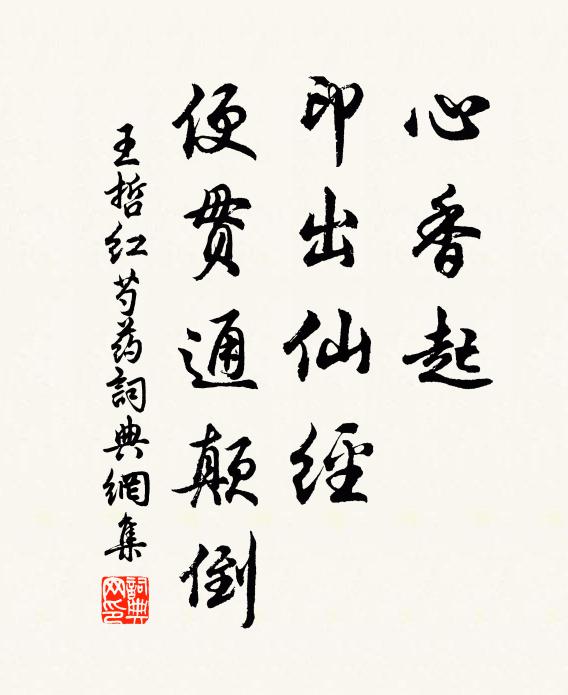 心香起
印出仙經
便贯通颠倒
王哲红芍药詞典網集
詞典网印